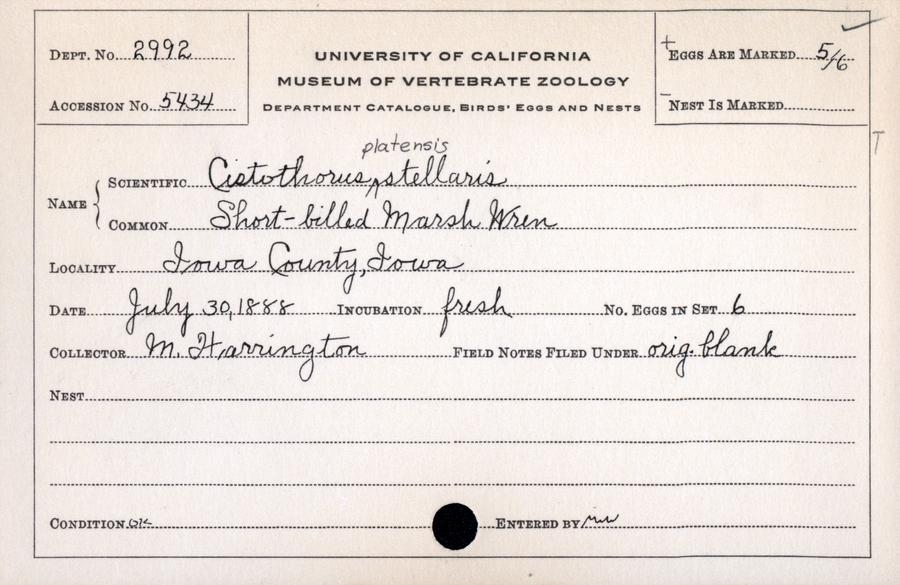 Dept. No. 2992
Accession No. 5434
UNIVERSITY OF CALIFORNIA
MUSEUM OF VERTEBRATE ZOOLOGY
Department Catalogue, Birds' Eggs and Nests
+ Eggs Are Marked 5/6
- Nest Is Marked
T
platensis
Name { Scientific Cistothorus ‸ stellaris
Common Short-billed Marsh Wren
Locality Iowa County, Iowa
Date July 30, 1888 Incubation fresh No. Eggs in Set 6
Collector M. Harrington Field Notes Filed Under orig. blank
Nest
Condition ok Entered by